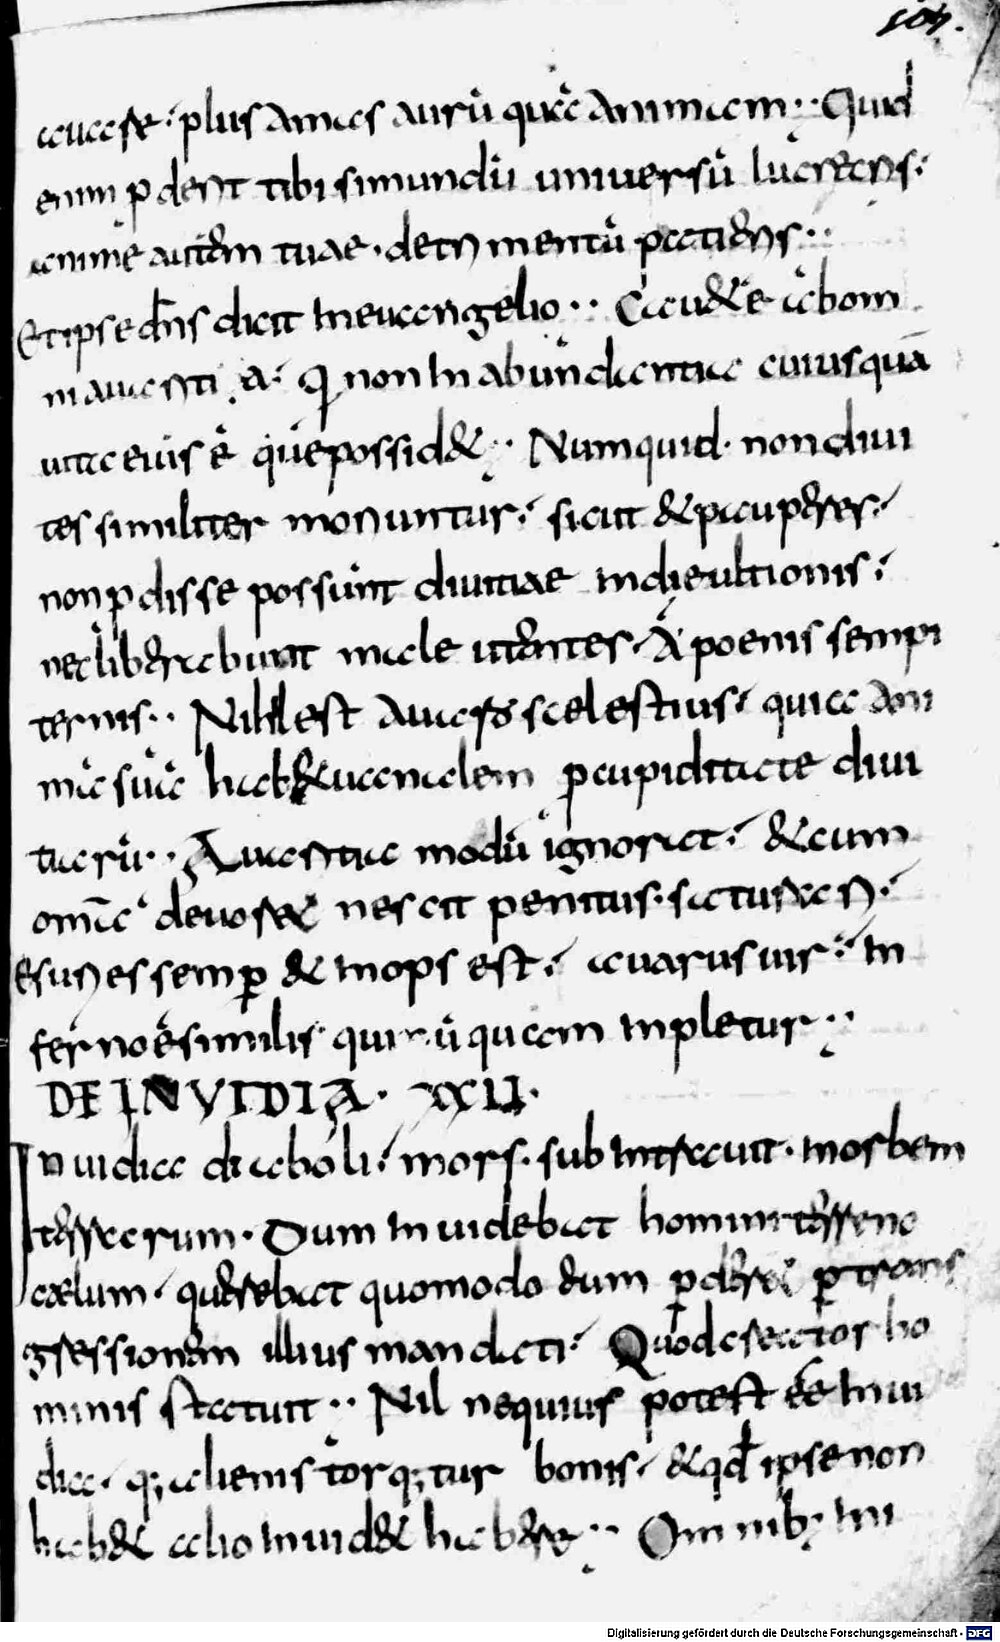 104.
auare· plus amas aurū quā animam·· Quid
enim pdest tibi si mundū uniuersū lucreris·
animę autem tuae· detrimentū patieris··
Et ipse dn̄s dicit in euuangelio·· Cauete ab om
ni auaritia· q non in abundantia cuiusquā
uita eius ē quę possid&·· Numquid· non diui
tes similiter moriuntur· sicut & pauperes·
non pdisse possunt diuitiae in die ultionis·
nec liberabunt male utentes· A poenis sempi
ternis·· Nihil est auaro scelestius· quia ani
mā suā hab& uenalem p cupiditate diui
tiarū·· Auaritia modū ignorat· & cum
omīa deuoret nescit penitus· saturari·
Esuries semp & inops est· auarus uir· in
ferno ē similis qui numquam inpletur··
DE INVIDIA· XXII·
Inuidia diaboli· mors· subintrauit· in orbem
terrarum· Dum inuidebat homini terreno
cælum· querebat quomodo eum pderet p trans
gressionem illius mandati· Quod creator ho
minis statuit·· Nil nequius potest ēē inui
dia· q; alienis torq;tur bonis· & qd ipse non
hab& alio inuid& habere·· Omnib; ini
Digitalisierung gefördert durch die Deutsche Forschungsgemeinschaft - DFG